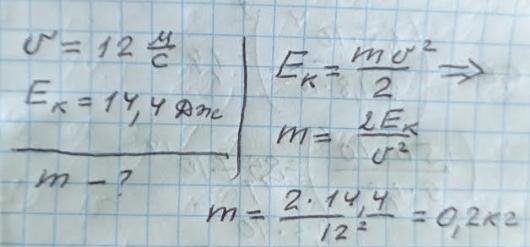 υ = 12 м/с
Eк = 14,4 Дж
m – ?
Eк = mυ²/2 ⇒
m = 2Eк/υ²
m = 2·14,4/12² = 0,2кг